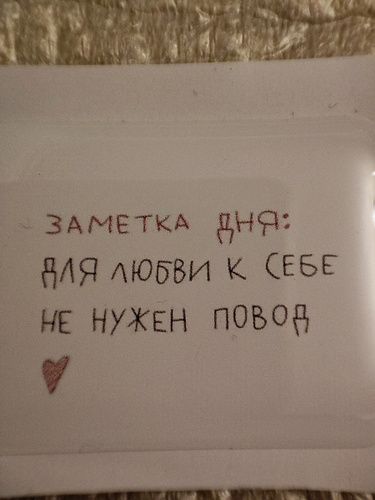 ЗАМЕТКА ДНЯ:
ДЛЯ ЛЮБВИ К СЕБЕ
НЕ НУЖЕН ПОВОД